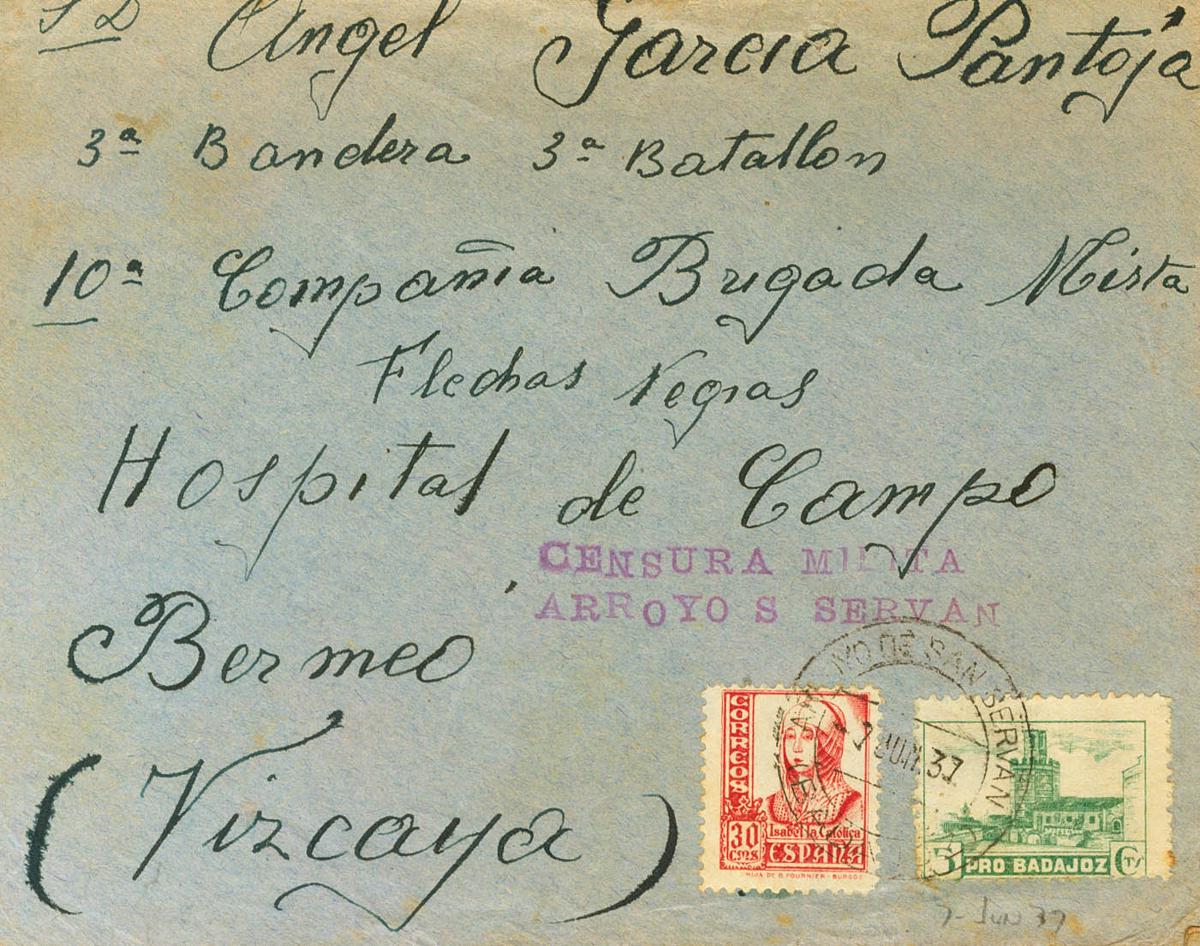 S D Angel Garcia Pantoja
3ª Bandera 3ª Batallon
10ª Compañia Brigada Mista
Flechas Negras
Hospital de Campo
CENSURA MILITA
ARROYO S SERVAN
Bermeo
(Vizcaya)
ARROYO DE SAN SERVAN
7 JUN. 37
CORREOS
30 CMS
Isabel la Católica
ESPAÑA
HIJA DE B. FOURNIER - BURGOS
5 PRO BADAJOZ CTS
7-Jun 37